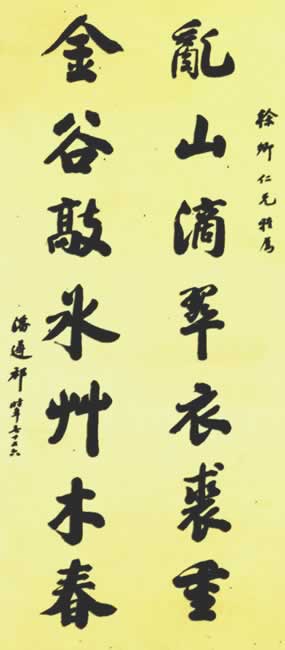 徐仁兄雅属
亂山滴翠衣裘重
金谷敲氷艸木春
潘遵祁時年七十又六